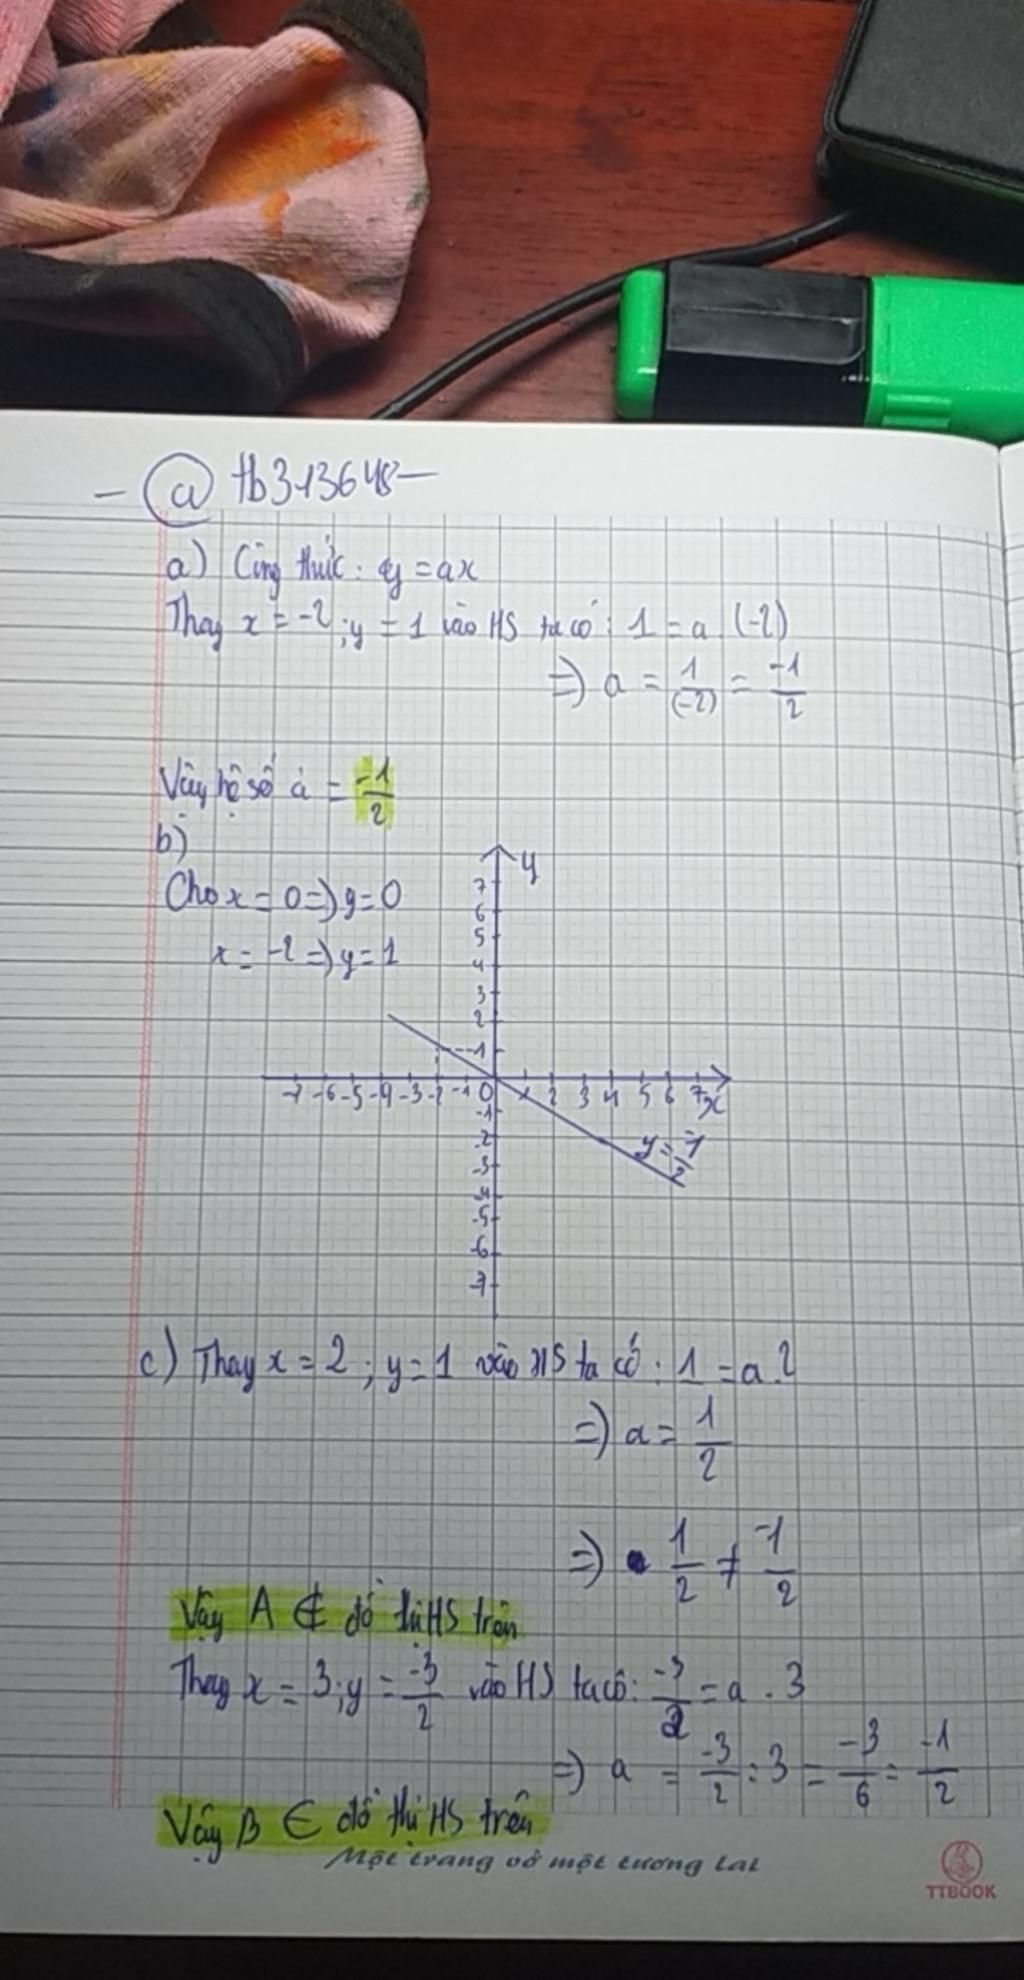 - @ tb313648-
a) Công thức: y = ax
Thay x = -2; y = 1 vào HS ta có: 1 = a.(-2)
=> a = 1/(-2) = -1/2
Vậy hệ số a = -1/2
b)
Cho x = 0 => y = 0
x = -2 => y = 1
y
7
6
5
4
3
2
1
-7 -6 -5 -4 -3 -2 -1 0 1 2 3 4 5 6 7 x
-1
-2
-3
-4
-5
-6
-7
y = -1/2
c) Thay x = 2; y = 1 vào HS ta có: 1 = a.2
=> a = 1/2
=> 1/2 ≠ -1/2
Vậy A ∉ đồ thị HS trên
Thay x = 3; y = -3/2 vào HS ta có: -3/2 = a . 3
=> a = -3/2 : 3 = -3/6 = -1/2
Vậy B ∈ đồ thị HS trên
Một trang vở một tương lai
TTBOOK